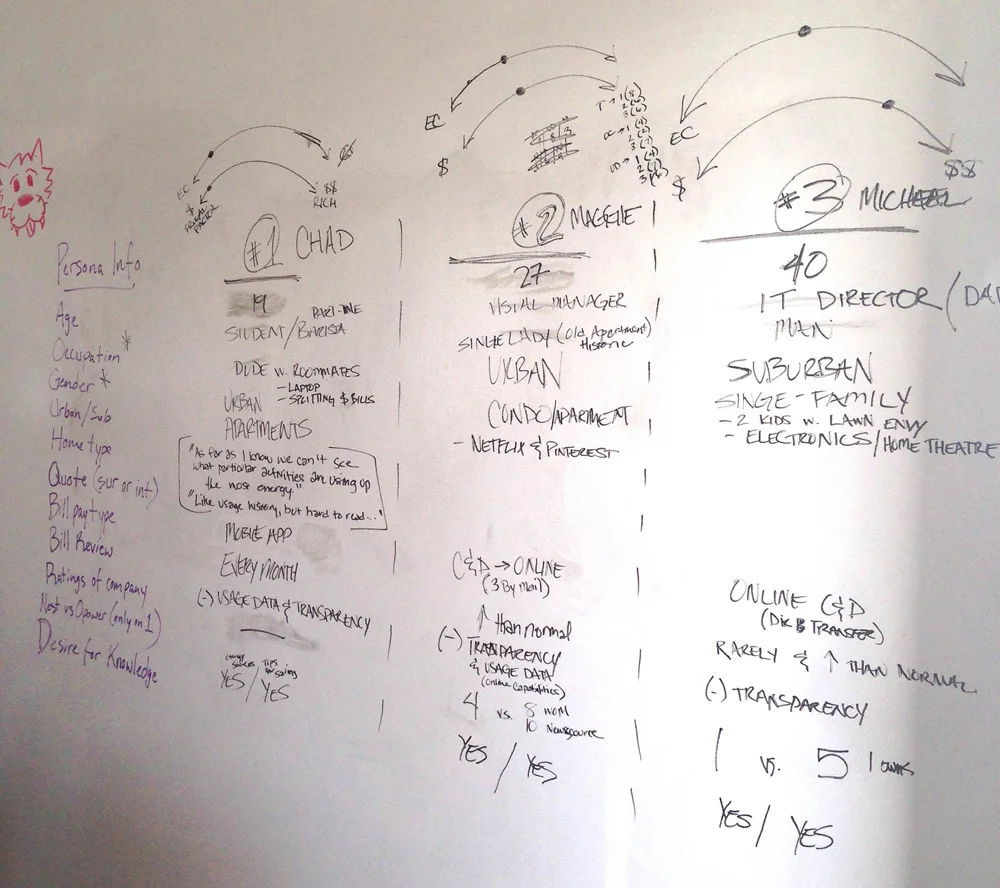 Persona Info
Age
Occupation*
Gender*
Urban/Sub
Home type
Quote (sur or int)
Bill pay type
Bill Review
Ratings of company
Nest vs Opower (only on 1)
Desire for Knowledge
EC
$$
$
FRUGAL FACTOR
$$
RICH
#1 CHAD
19
PART-TIME
STUDENT/BARISTA
DUDE W. ROOMMATES
- LAPTOP
- SPLITTING $ BILLS
URBAN
APARTMENTS
"As far as I know we can't see
what particular activities are using up
the most energy."
"Like usage history, but hard to read..."
MOBILE APP
EVERY MONTH
(-) USAGE DATA & TRANSPARENCY
Energy Sources
Tips for Saving
YES/YES
EC
$
T → 1(8)
#2 MAGGIE
27
VISUAL MANAGER
SINGLE LADY (Old Apartment)
Historic
URBAN
CONDO/APARTMENT
- NETFLIX & PINTEREST
C&D → ONLINE
(3 By mail)
↑ than normal
(-) TRANPARENCY
& USAGE DATA
(Online Capabilities)
4 vs. 8 WOM
10 Newsource
YES / YES
EC
$
$$
#3 MICHAEL
40
IT DIRECTOR/DAD
MAN
SUBURBAN
SINGE-FAMILY
- 2 KIDS W. LAWN ENVY
- ELECTRONICS/HOME THEATRE
ONLINE C&D
RARELY & ↑ THAN NORMAL
(-) TRANSPARENCY
1 vs. 5 1 owns
YES / YES